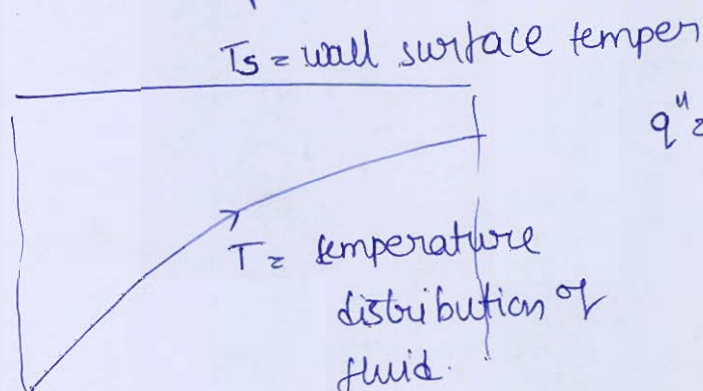 Ts = wall surface temper
q" =
T = temperature
distribution of
fluid.